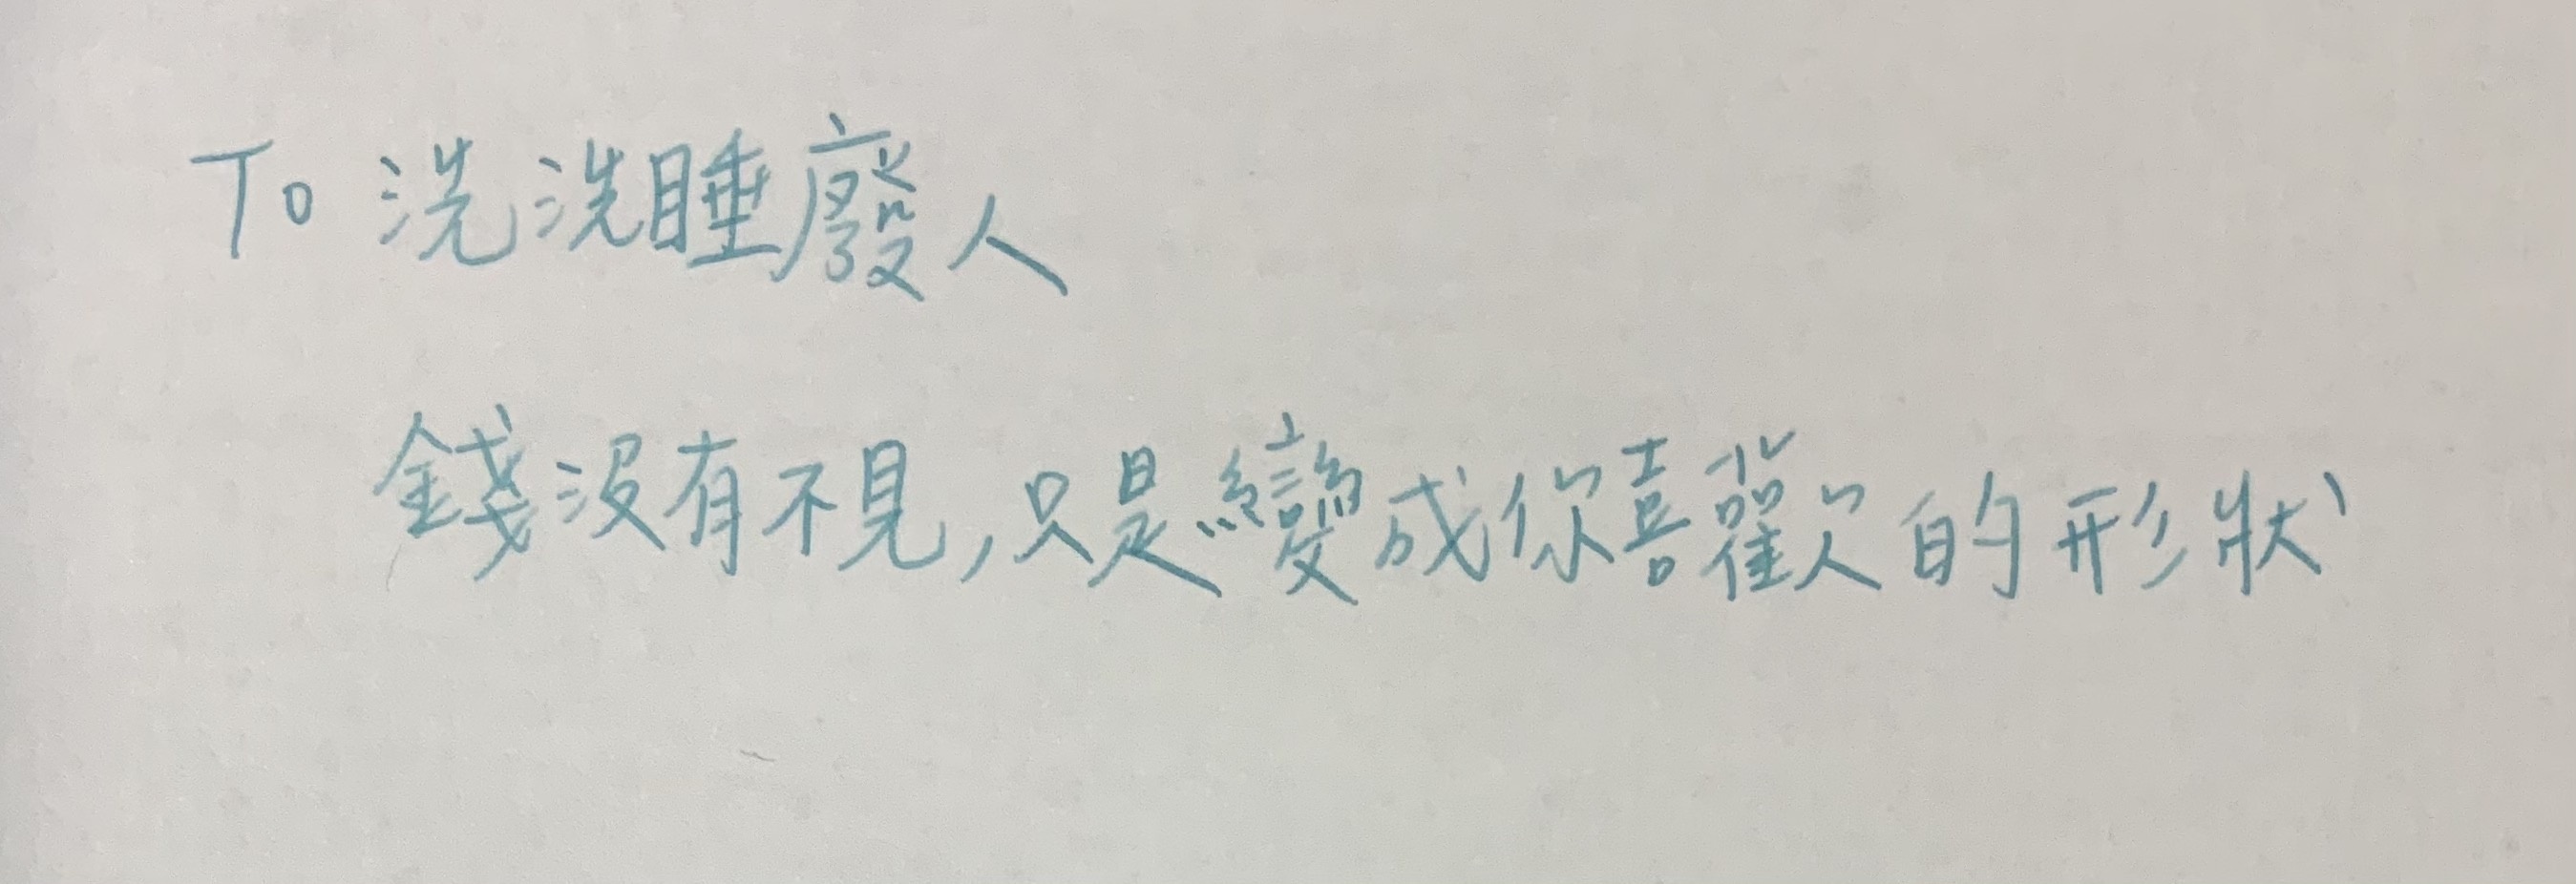 To 洗洗睡廢人
錢沒有不見,只是變成你喜歡的形狀